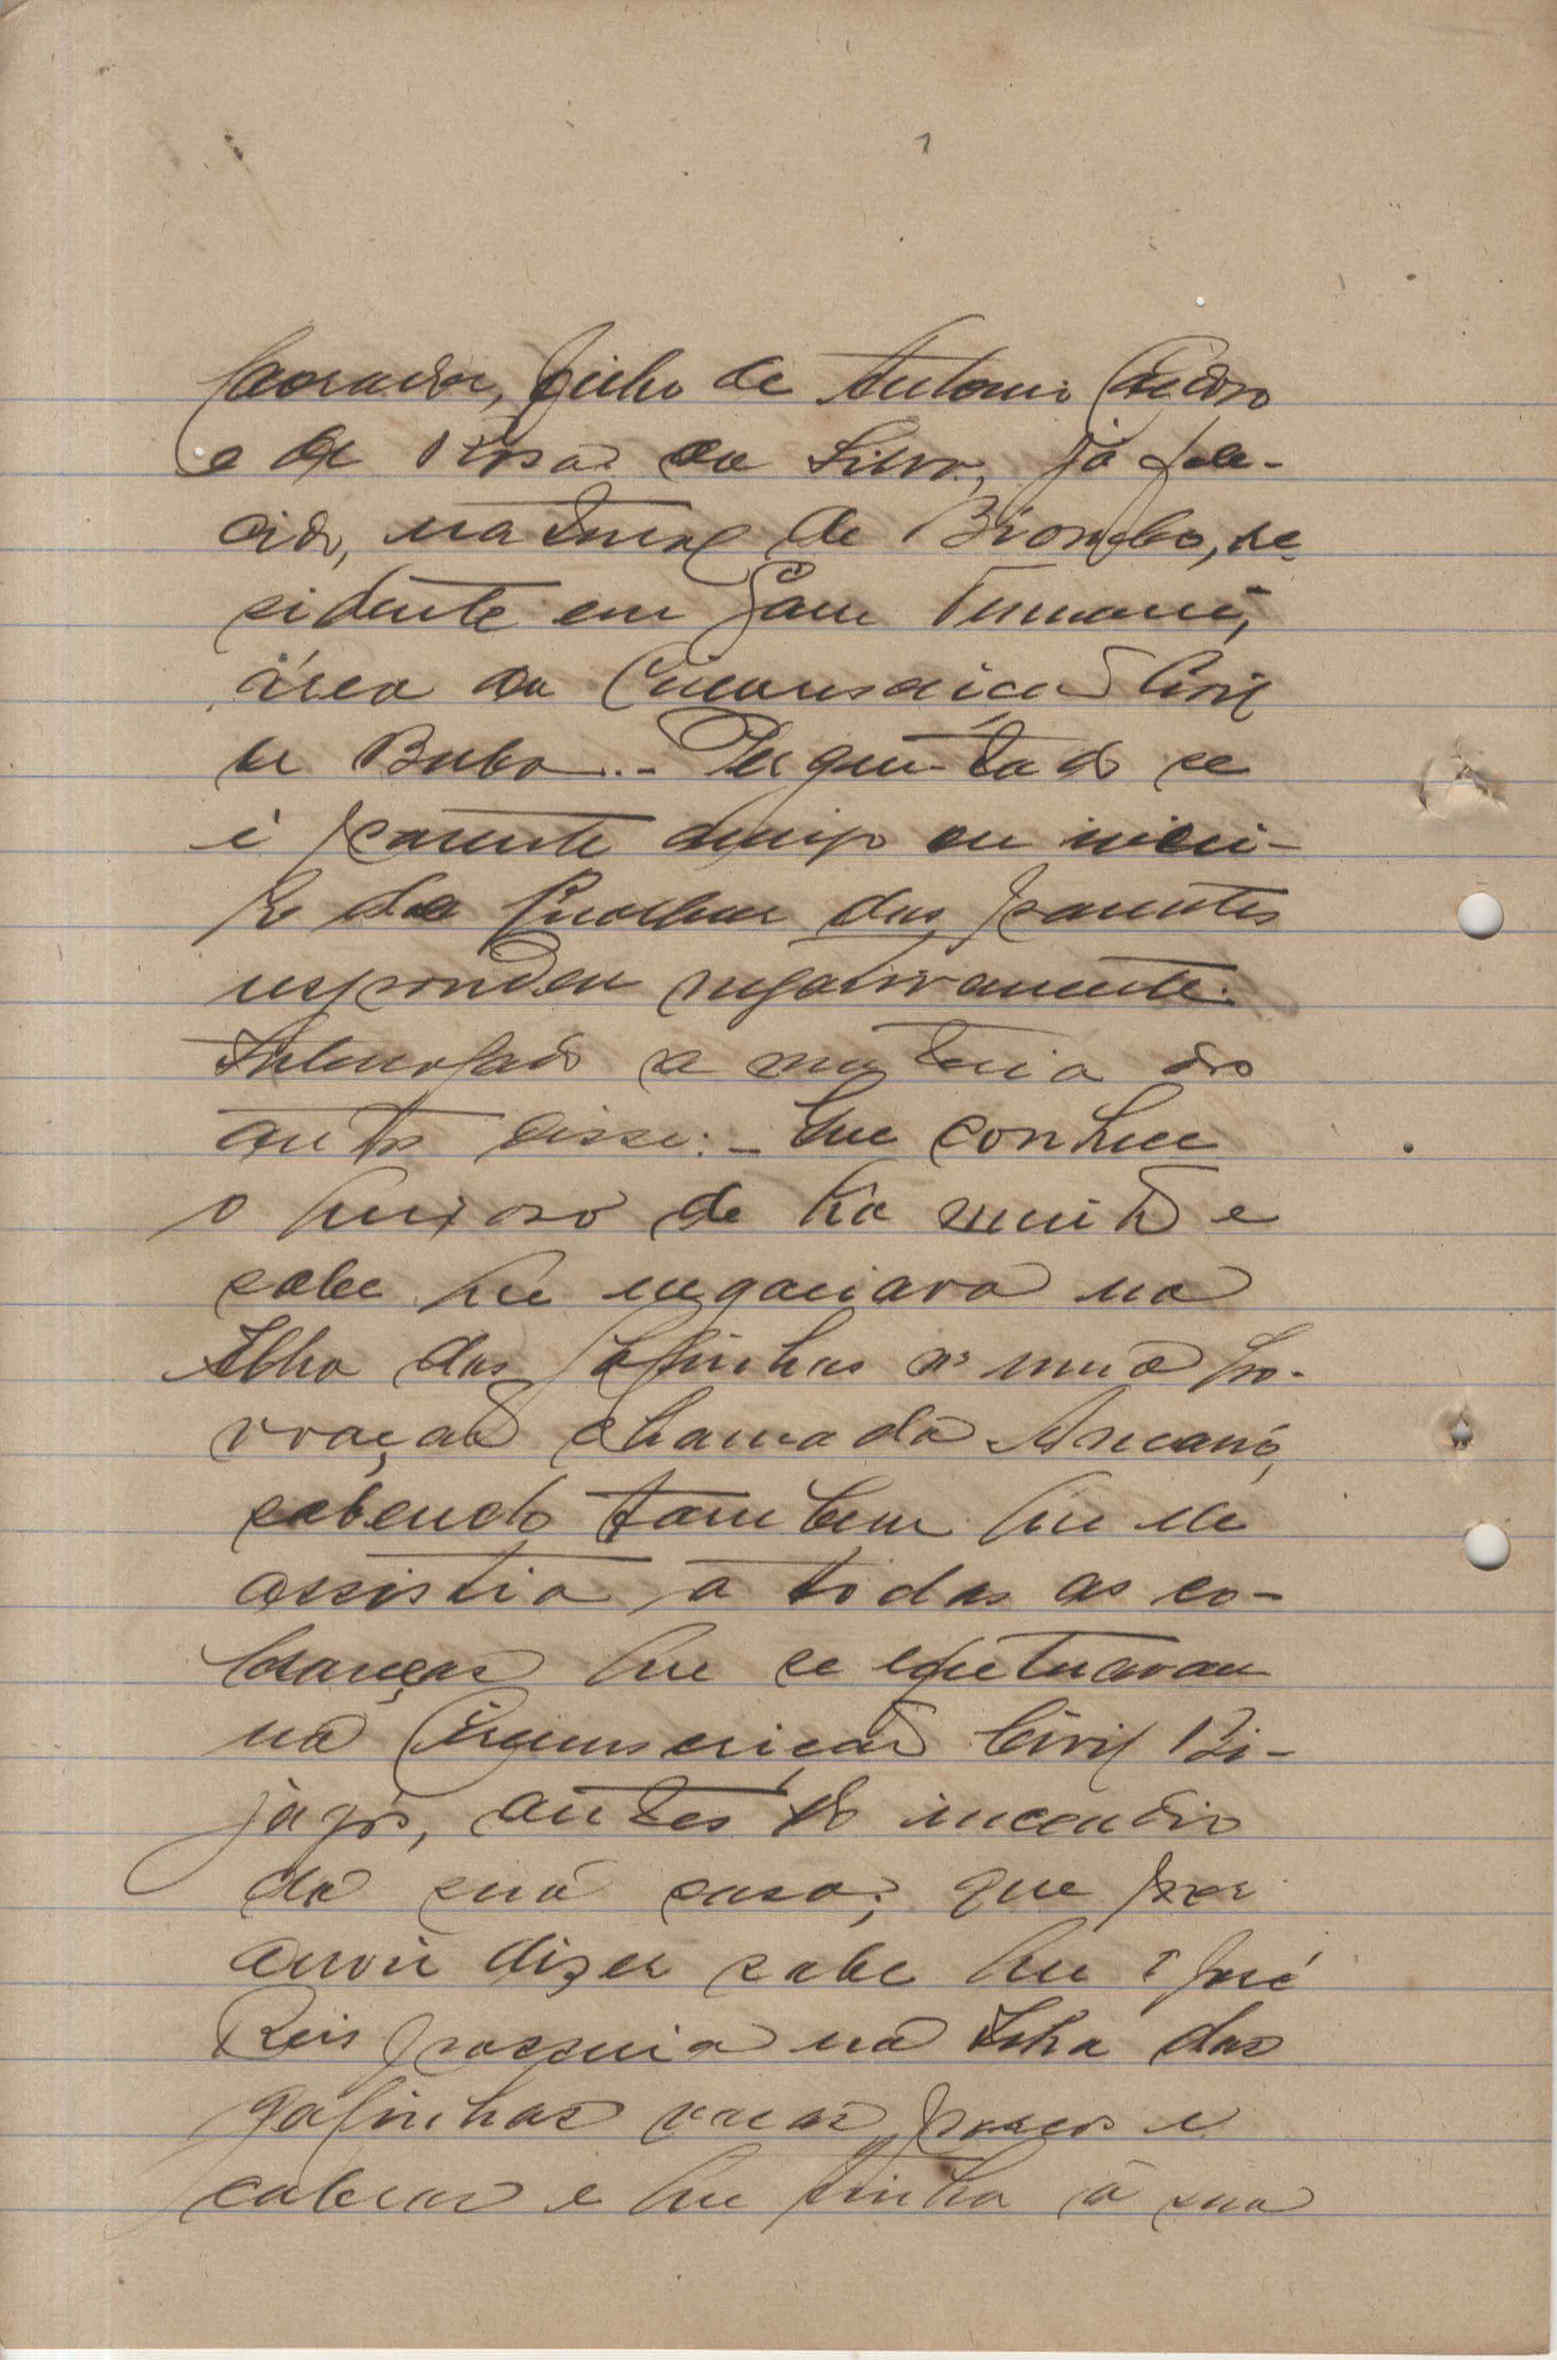 lavrador, filho de Antonio Pedro
e de Rosa da Silva, já fale-
cido, natural de Biombo, re-
sidente em
área da Circunscrição Civil
de Buba.- Perguntado se
é parente amigo ou inimi-
go de das partes
respondeu negativamente.
Interrogado a materia dos
autos disse:- Que conhece
o queixoso de ha muito e
sabe que negociava na
Ilha das Galinhas n'uma po-
voação chamada Ancanó,
sabendo tambem que ele
assistia a todas as co-
branças que se efetuavam
na Circunscrição Civil Bi-
jagós, antes do incendio
da sua casa; que por
ouvir dizer sabe que o José
Reis possuia na Ilha das
galinhas vacas porcos e
cabras e que tinha a sua